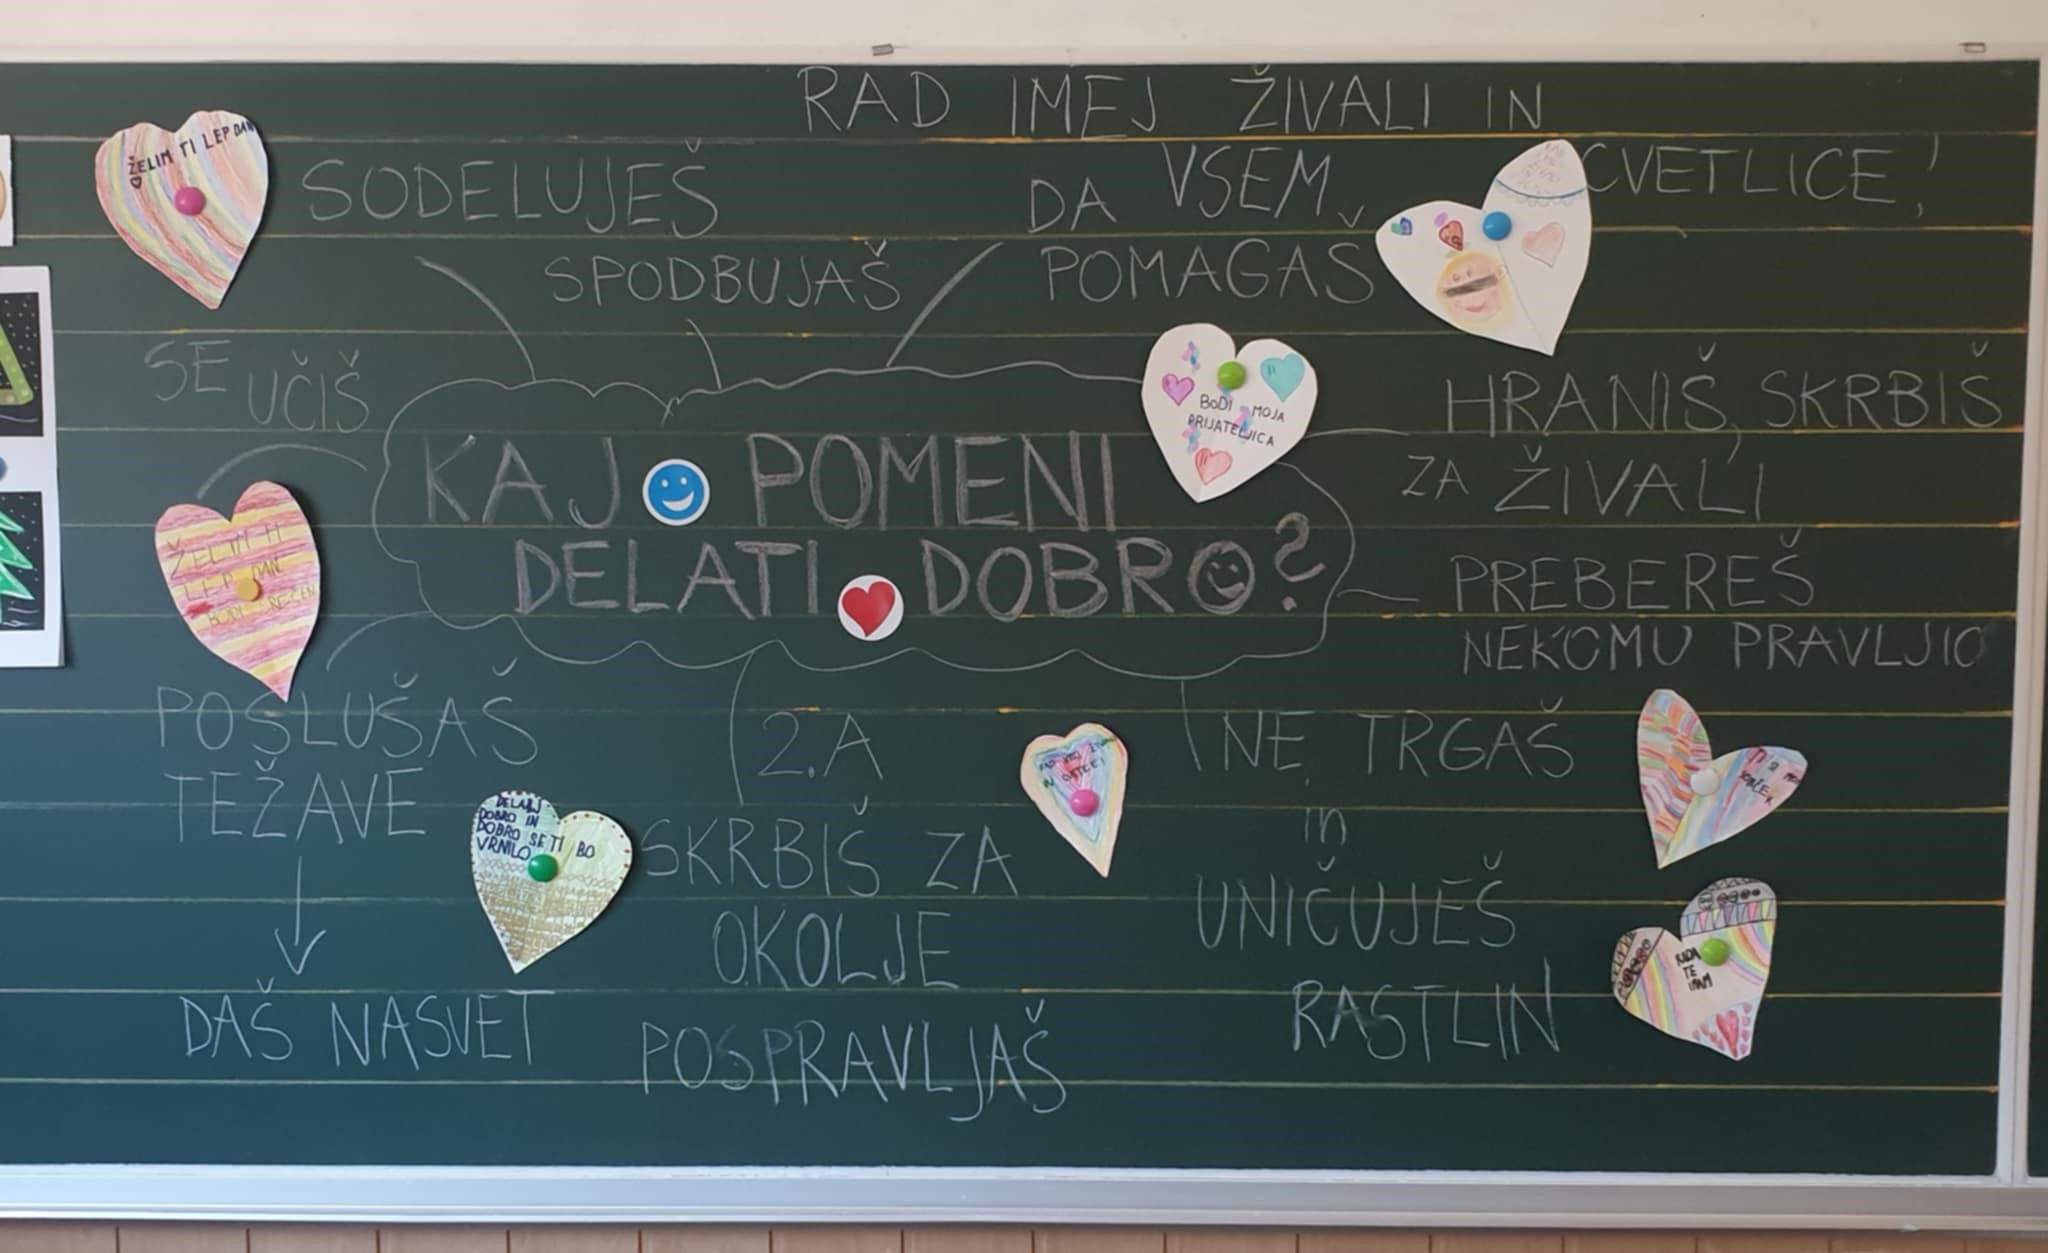 RAD IMEJ ŽIVALI IN
CVETLICE!
ŽELIM TI LEP DAN
SODELUJEŠ
SPODBUJAŠ
DA VSEM
POMAGAŠ
SE UČIŠ
BODI MOJA
PRIJATELJICA
HRANIŠ, SKRBIŠ
ZA ŽIVALI
KAJ POMENI
DELATI DOBRO?
PREBEREŠ
NEKOMU PRAVLJIC
ŽELIM TI
LEP DAN
BODI
POSLUŠAŠ
TEŽAVE
DAŠ NASVET
DELAJ
DOBRO IN
DOBRO SE TI BO
VRNILO
2.A
SKRBIŠ ZA
OKOLJE
POSPRAVLJAŠ
NE TRGAŠ
in
UNIČUJEŠ
RASTLIN
TI SI
RADA
TE
IMAM